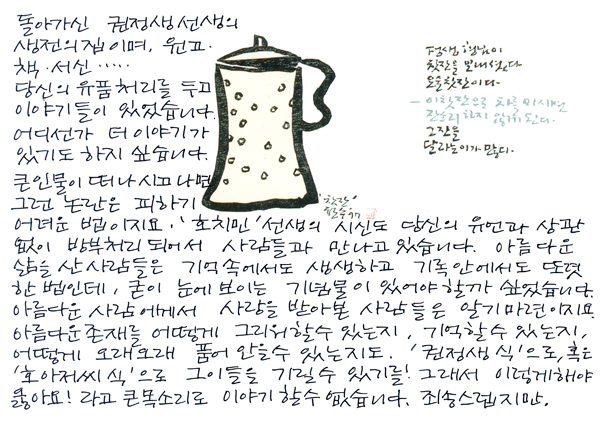 돌아가신 권정생선생의
생전의 집이며, 원고·
책·서신·····
당신의 유품처리를 두고
이야기들이 있었습니다.
어디선가 더 이야기가
있기도 하지 싶습니다.
큰인물이 떠나시고 나면
그런 논란은 피하기
어려운 법이지요. '호치민' 선생의 시신도 당신의 유언과 상관
없이 방부처리 되어서 사람들과 만나고 있습니다. 아름다운
삶을 산 사람들은 기억속에서도 생생하고 기록안에서도 또렷
한 법인데, 굳이 눈에 보이는 기념물이 있어야 할까 싶었습니다.
아름다운 사람에게서 사랑을 받아본 사람들은 알기 마련이지요
아름다운존재를 어떻게 그리워할수 있는지, 기억할수 있는지,
어떻게 오래오래 품어 안을수 있는지도. '권정생 식'으로, 혹은
'호아저씨 식'으로 그이들을 기릴수 있기를! 그래서 이렇게 해야
옳아요! 라고 큰목소리로 이야기 할수 없습니다. 죄송스럽지만.
형님이
찻잔을 보내셨다
찻잔이다.
- 이찻잔으로 차를 마시면
잔소리하지 않게된다.
그잔을
달라는이가 많다.
'찻잔'